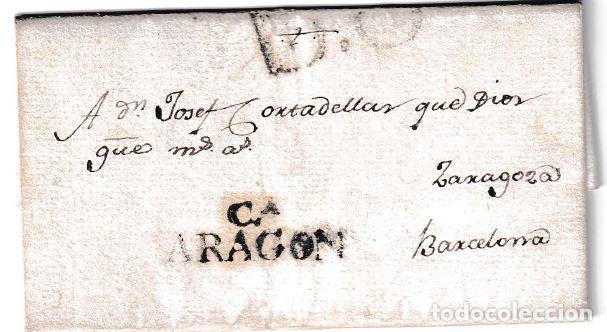 D.6
A dn. Josef Cortadellas que Dios
gue ms. as.
Zaragoza
CA
ARAGON
Barcelona
todocoleccion